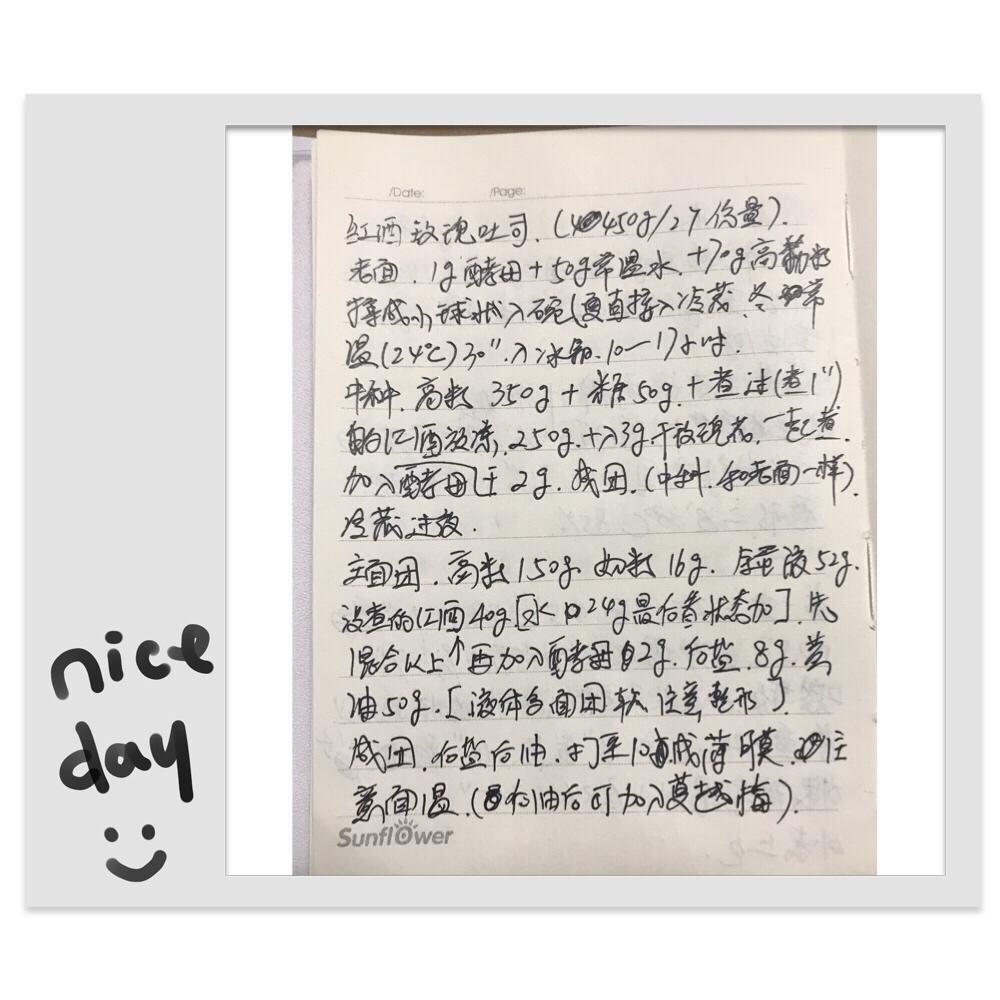 /Date: /Page:
红酒玫瑰吐司.(450g/2个份量).
老面. 1g酵母+50g常温水.+70g高筋粉
揉成小球状入碗(夏直接入冷藏.冬常
温(24℃)30".入冰箱.10一17小时.
中种.高粉350g+糖50g.+煮过(煮1")
的红酒放凉.250g.+入3g干玫瑰花.一起煮.
加入酵母 2g.成团.(中种.和老面一样).
冷藏过夜.
主面团.高粉150g.奶粉16g.全蛋液52g.
没煮的红酒40g[水 24g最后看状态加].先
混合以上↑再加入酵母2g.后盐.8g.黄
油50g.[液体多面团软 注意整形].
成团.后盐后油.打至 成薄膜.注
意面温.(后油后可加入蔓越梅).
Sunflower
nice
day